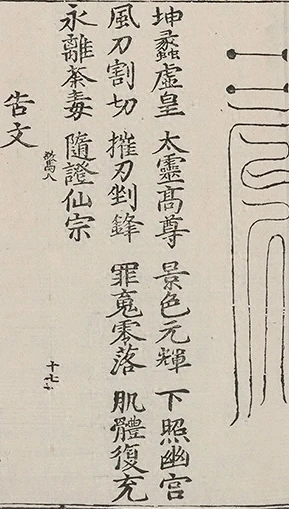 坤蠡虛皇 太靈高尊 景色元輝 下照幽宮
風刀割切 摧刀剉鋒 罪䰟零落 肌體復充
永離荼毒 隨證仙宗
告文
十七